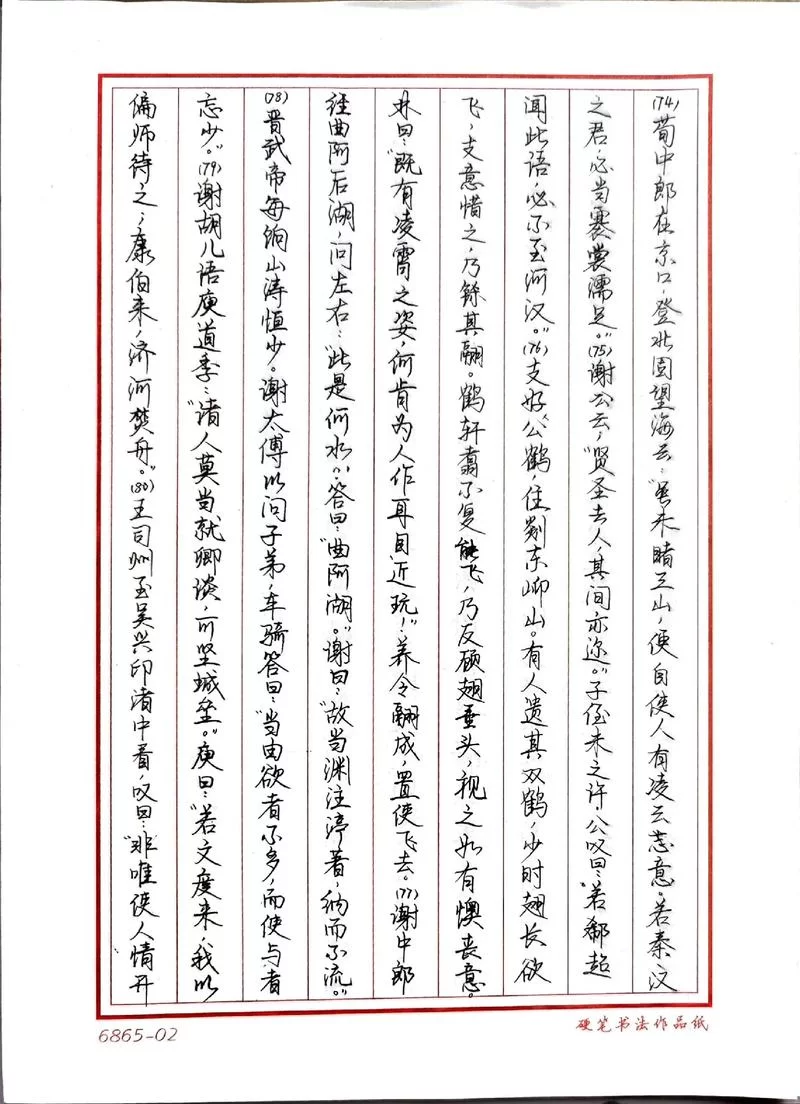 (74)荀中郎在京口，登北固望海云：“虽未睹三山，便自使人有凌云志意。若秦汉
之君，必当褰裳濡足。”(75)谢公云，“贤圣去人，其间亦迩。”子侄未之许，公叹曰：“若郗超
闻此语，必不至河汉。”(76)支公好鹤，住剡东岇山。有人遗其双鹤，少时翅长欲
飞，支意惜之，乃铩其翮。鹤轩翥不复能飞，乃反顾翅垂头，视之如有懊丧意。
林曰：“既有凌霄之姿，何肯为人作耳目近玩！”养令翮成，置使飞去。(77)谢中郎
经曲阿后湖，问左右：“此是何水？”答曰：“曲阿湖。”谢曰：“故当渊注渟著，纳而不流。”
(78)晋武帝每饷山涛恒少。谢太傅以问子弟，车骑答曰：“当由欲者不多，而使与者
忘少。”(79)谢胡儿语庾道季：“诸人莫当就卿谈，可坚城垒。”庾曰：“若文度来，我以
偏师待之，康伯来，济河焚舟。”(80)王司州至吴兴印渚中看，叹曰：“非唯使人情开
6865-02
硬笔书法作品纸